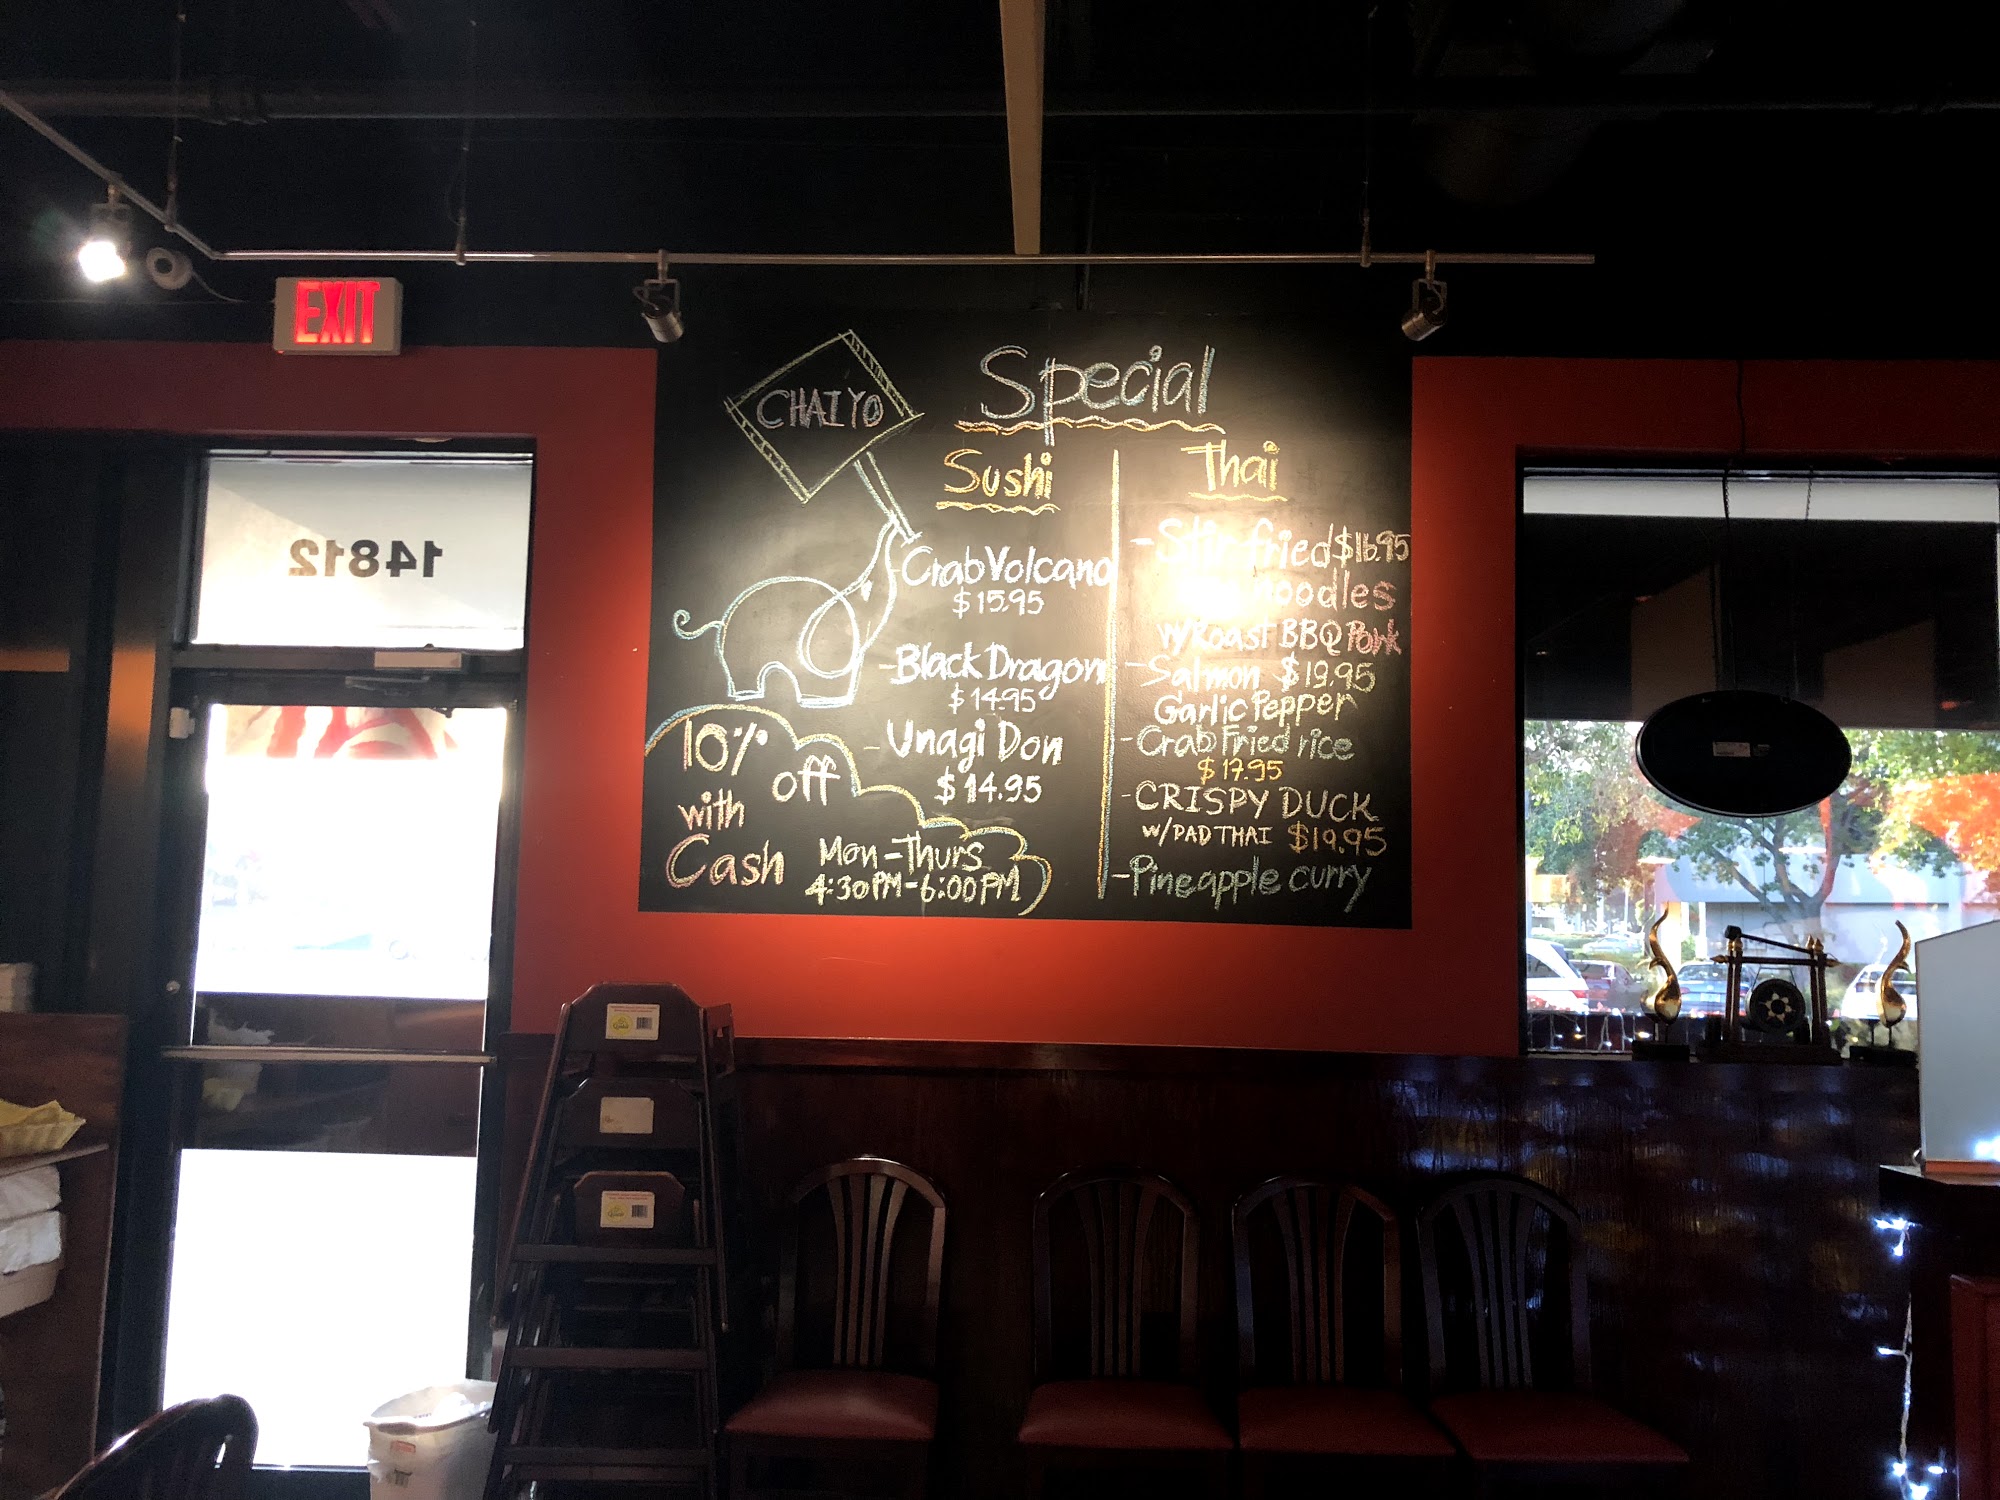 EXIT
14812
CHAIYO
Special
Sushi
- Crab Volcano
$15.95
- Black Dragon
$14.95
- Unagi Don
$14.95
Thai
- Stir fried $16.95
noodles
w/Roast BBQ Pork
- Salmon $19.95
Garlic Pepper
- Crab Fried rice
$17.95
- CRISPY DUCK
w/PAD THAI $19.95
- Pineapple curry
10%
off
with
Cash
Mon-Thurs
4:30PM-6:00PM